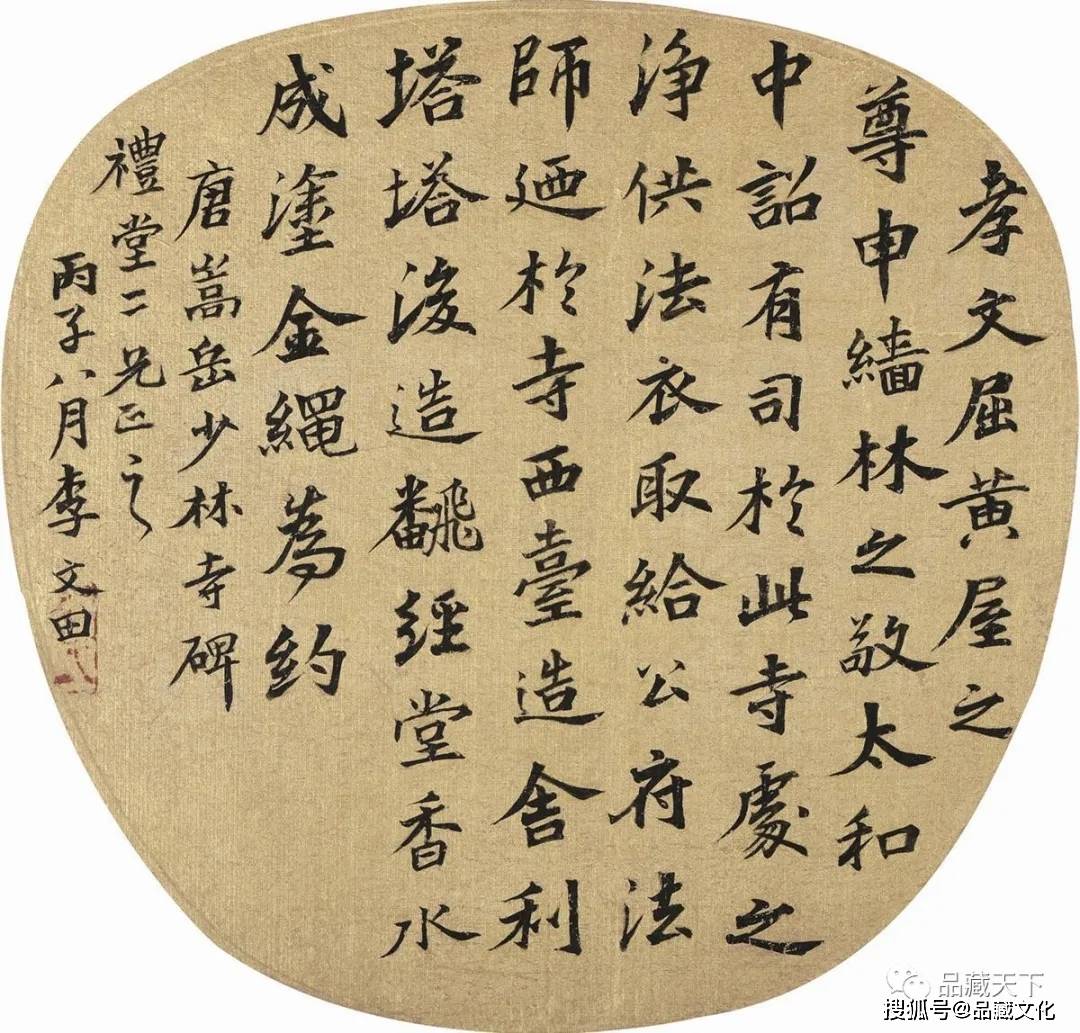 孝文屈黃屋之
尊申繬林之敬太和
中詔有司於此寺處之
淨供法衣取給公府法
師迺於寺西臺造舍利
塔塔後造飜經堂香水
成塗金繩為約
唐嵩岳少林寺碑
禮堂二兄正之
丙子八月李文田
品藏天下
搜狐号@品藏文化